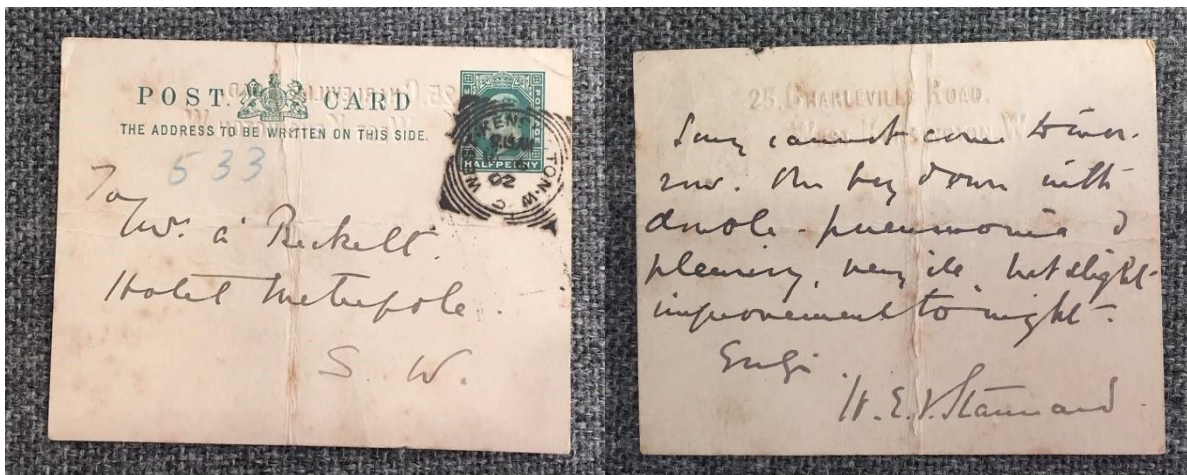 POST CARD
THE ADDRESS TO BE WRITTEN ON THIS SIDE.
HALFPENNY
WEST KENSINGTON.W
02
533
To
Mrs. à Beckett.
Hotel Metropole.
S. W.
25, CHARLEVILLE ROAD.
WEST KENSINGTON. W.
Sorry cannot come tomor-
row. One boy down with
double pneumonia &
pleurisy, very ill but slight
improvement to night.
H.E.V. Stannard